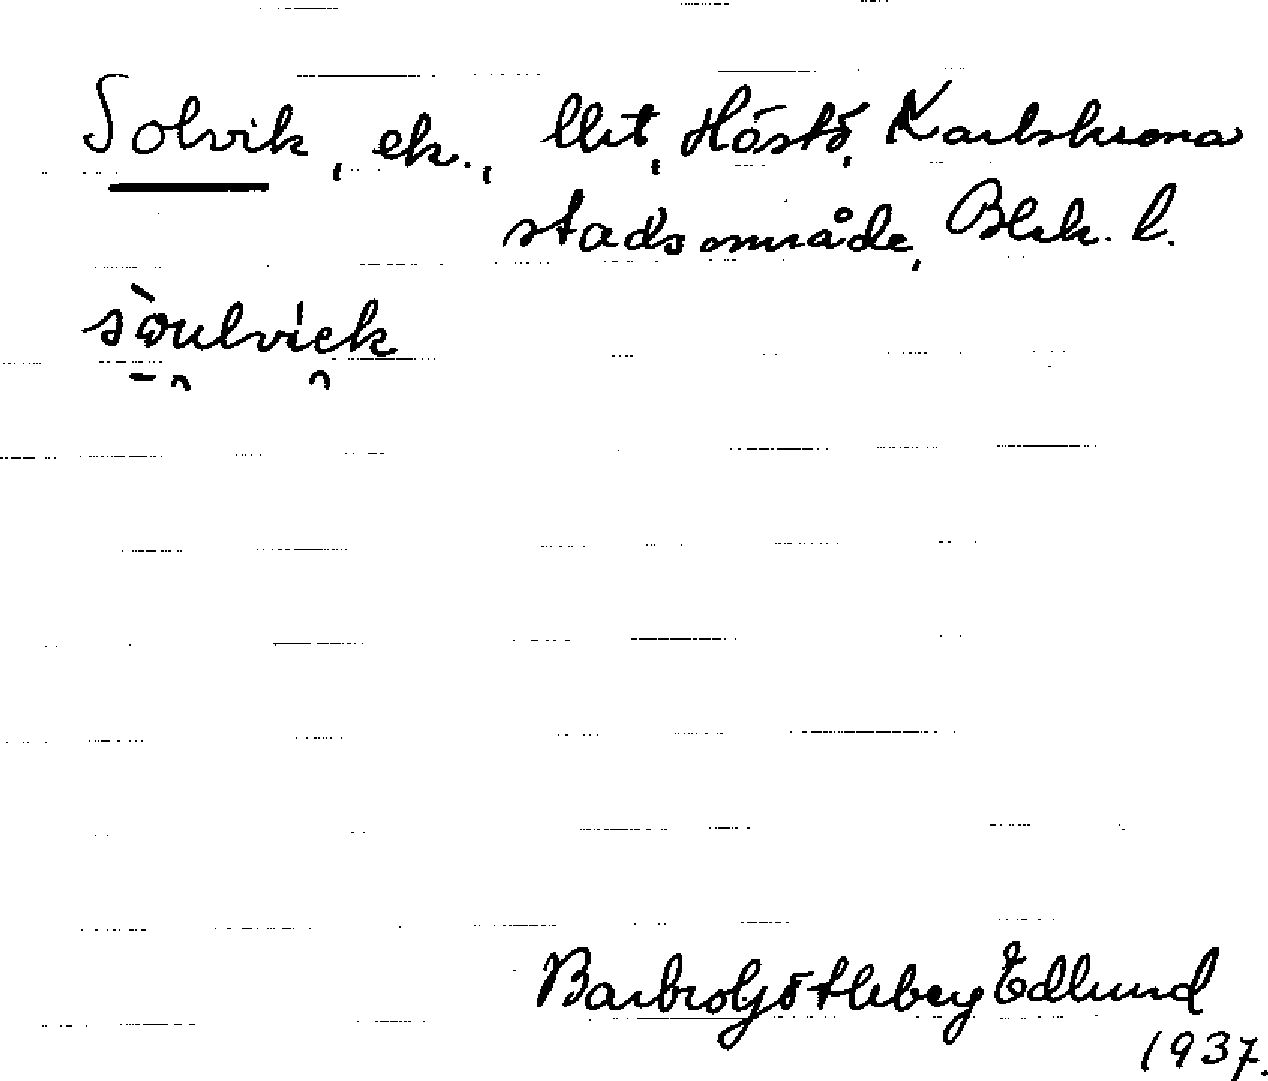 Solvik, ek., Ubt, Hästö, Karlskrona
stadsområde, Blek. l.
sòulvick
Barbro Götleberg Edlund
1937.